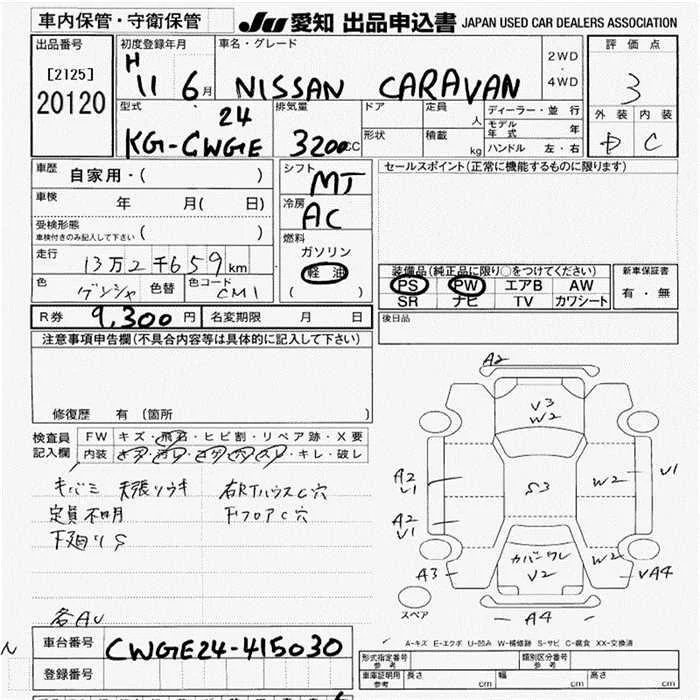 車内保管・守衛保管
JU 愛知 出品申込書 JAPAN USED CAR DEALERS ASSOCIATION
出品番号
[2125]
20120
初度登録年月
H 11 6月
車名・グレード
NISSAN CARAVAN
2WD
・
4WD
評価点
3
外装 内装
D C
型式
24
KG-CWGE
排気量
3200cc
ドア
形状
定員 人
積載 kg
ディーラー・並行
モデル年式 年
ハンドル 左・右
車歴 自家用・( )
車検 年 月( 日)
受検形態
車検付きのみ記入して下さい ( )
走行
13万2千659km
色 ゲンシャ 色替 色コード CM1
シフト
MT
冷房
AC
燃料
ガソリン
軽油
( )
セールスポイント(正常に機能するものに限ります)
装備品(純正品に限り○をつけてください)
PS PW エアB AW
SR ナビ TV カワシート
新車保証書
有・無
R券 9,300円 名変期限 月 日
後日品
注意事項申告欄(不具合内容等は具体的に記入して下さい)
修復歴 有 (箇所 )
検査員記入欄
FW キズ・飛石・ヒビ割・リペア跡・X要
内装 キズ・汚レ・コゲ・穴・スレ・キレ・破レ
キバミ 天張リウキ 右RTハウスC穴
定員不明 下フロアC穴
下廻りS
各AU
A2
V3
W2
A2
U1
S3
W2
U1
A2
U1
カバーワレ
V2
W2
A3
UA4
A4
スペア
A-キズ E-エクボ U-凹み W-補修跡 S-サビ C-腐食 XX-交換済
車台番号 CWGE24-415030
登録番号
形式指定番号 参考
類別区分番号 参考
車庫証明用 参考 長さ cm 幅 cm 高さ cm